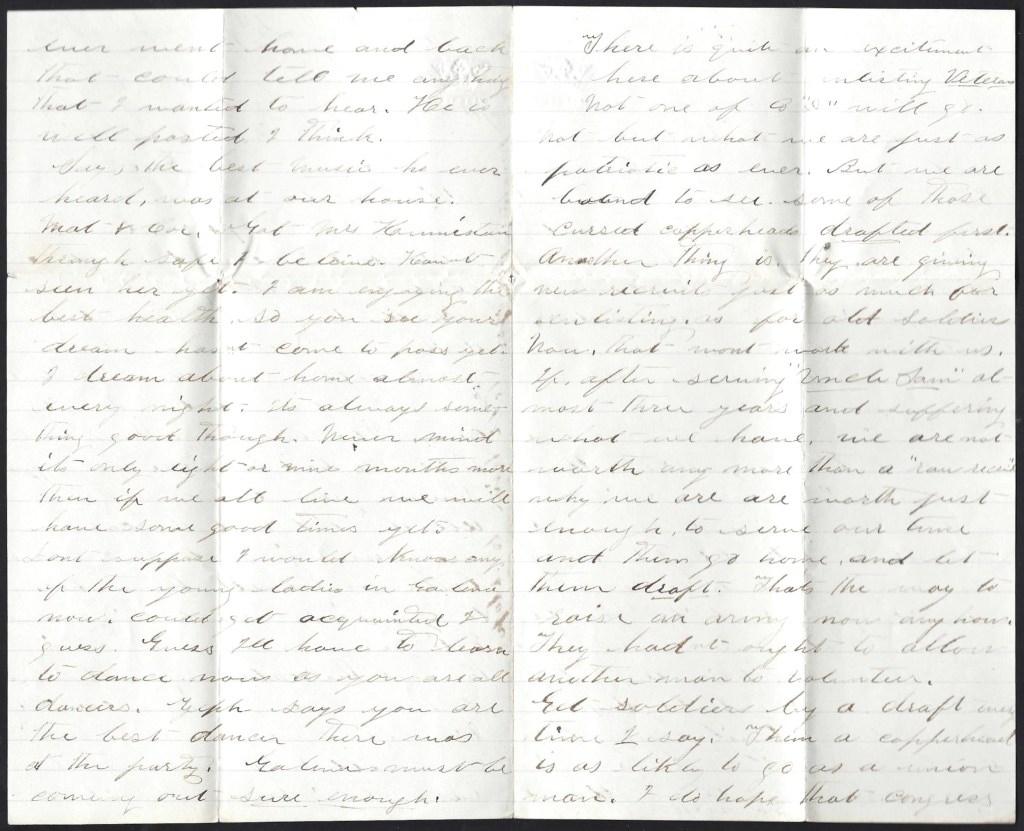 ever went home and back
that could tell me any thing
that I wanted to hear. He is
well posted I think.
Says the best music he ever
heard, was at our house.
Mat & Cor. Got Mrs
through safe. Havnt
seen her yet. I am enjoying the
best health. So you see your
dream hasnt come to pass yet.
I dream about home almost
every night. Its always some
thing good though. Never mind
its only eight or nine months more
then if we all live we will
have some good times yet.
Dont suppose I would know any
of the young ladies in Galena
now. Could get acquainted I
guess. Guess Ill have to learn
to dance now as you are all
dancers. Zeph says you are
the best dancer there was
at the party. Galena must be
coming out sure enough.
There is quite an excitement
here about enlisting Veterans
Not one of Co "D" will go.
Not but what we are just as
patriotic as ever. But we are
bound to see some of those
cursed copperheads drafted first.
Another thing is. They are giving
new recruits just as much for
enlisting, as for old soldiers
Now, that wont work with us.
If, after serving "Uncle Sam" al
most three years and suffering
what we have, we are not
worth any more than a "raw recruit"
why we are are worth just
enough, to serve our time
and then go home, and let
them draft. Thats the way to
raise an army now any how.
They hadnt ought to allow
another man to volunteer.
Get soldiers by a draft every
time I say. Then a copperhead
is as likely to go as a union
man. I do hope that congress